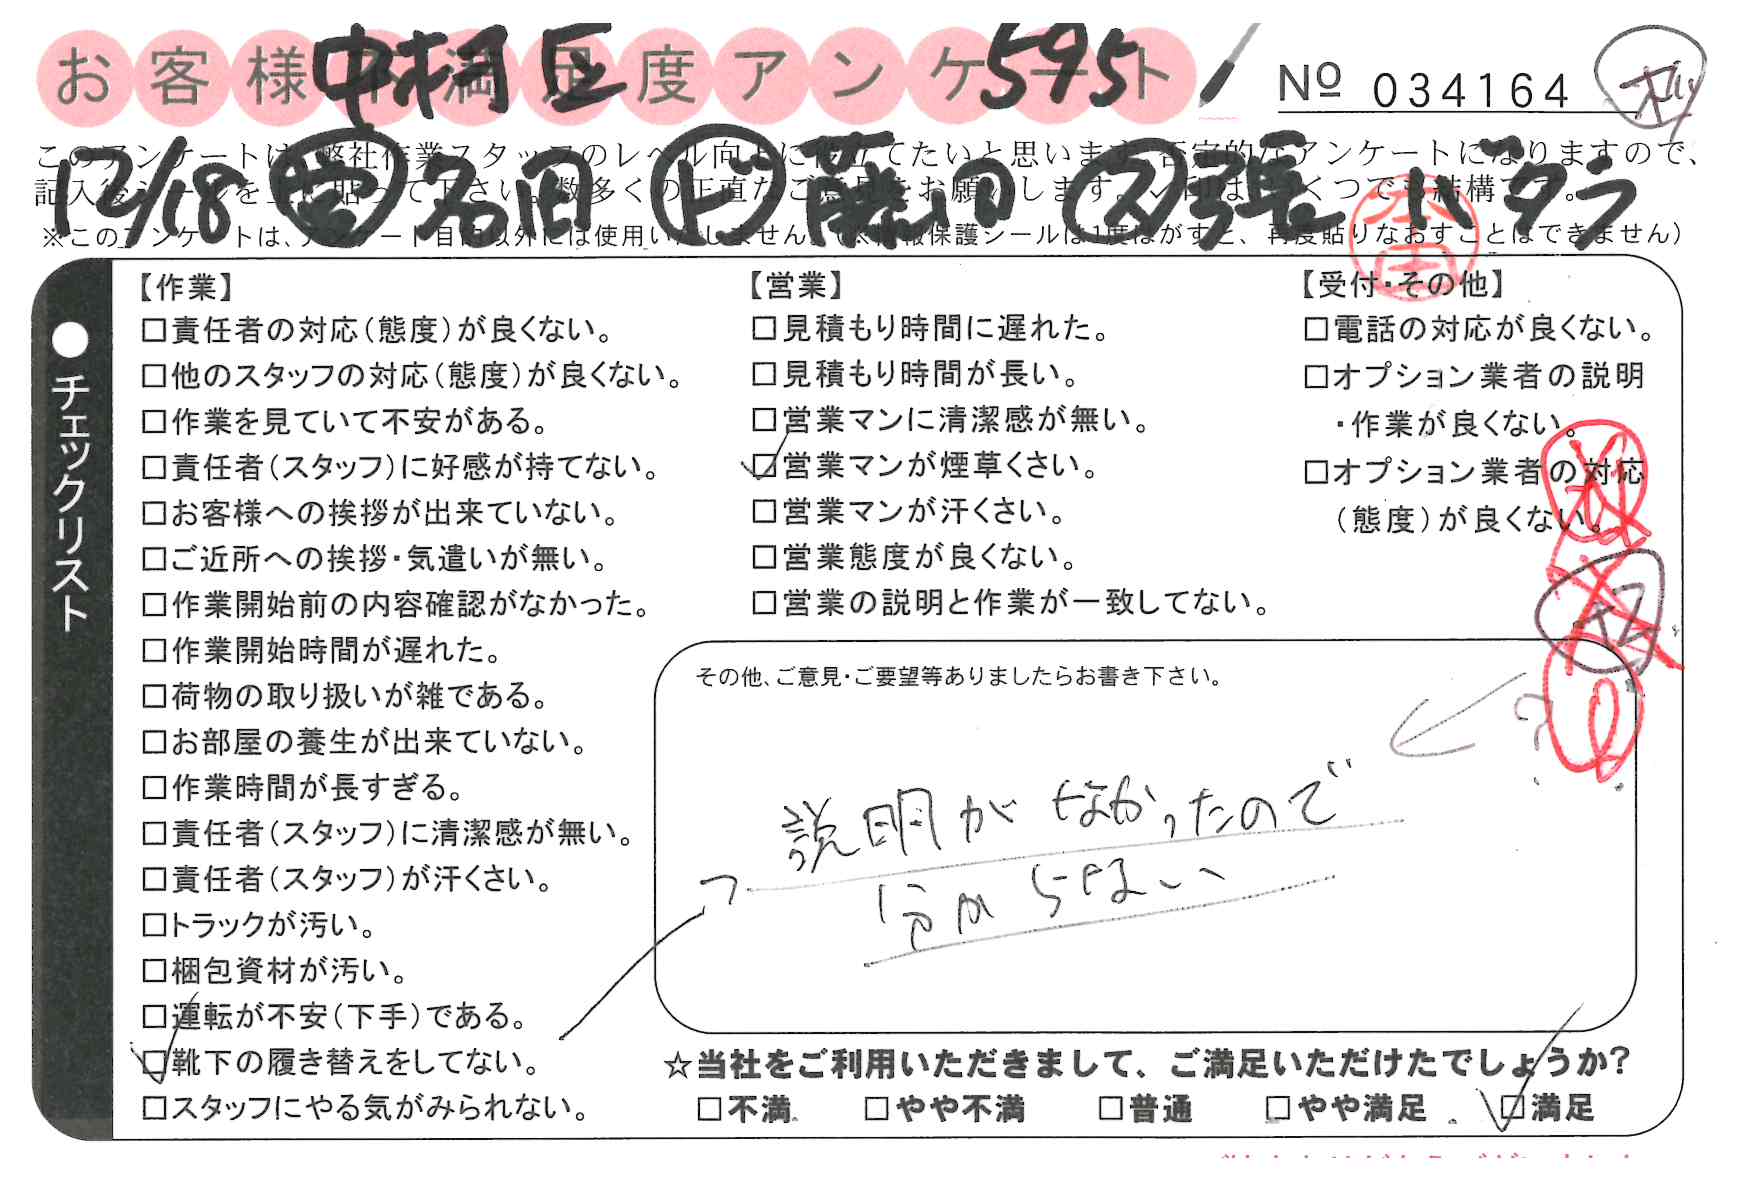 お客様不満足度アンケート
中村区 595
№ 034164
このアンケートは、弊社作業スタッフのレベル向上に役立てたいと思います。否定的なアンケートになりますので、
記入後シールを上に貼って下さい。数多くの正直なご意見をお願いします。✓印はいくつでも結構です。
12/18
※このアンケートは、アンケート目的以外には使用いたしません。(※情報保護シールは1度はがすと、再度貼りなおすことはできません)
●チェックリスト
【作業】
□責任者の対応(態度)が良くない。
□他のスタッフの対応(態度)が良くない。
□作業を見ていて不安がある。
□責任者(スタッフ)に好感が持てない。
□お客様への挨拶が出来ていない。
□ご近所への挨拶・気遣いが無い。
□作業開始前の内容確認がなかった。
□作業開始時間が遅れた。
□荷物の取り扱いが雑である。
□お部屋の養生が出来ていない。
□作業時間が長すぎる。
□責任者(スタッフ)に清潔感が無い。
□責任者(スタッフ)が汗くさい。
□トラックが汚い。
□梱包資材が汚い。
□運転が不安(下手)である。
□靴下の履き替えをしてない。
□スタッフにやる気がみられない。
【営業】
□見積もり時間に遅れた。
□見積もり時間が長い。
□営業マンに清潔感が無い。
□営業マンが煙草くさい。
□営業マンが汗くさい。
□営業態度が良くない。
□営業の説明と作業が一致してない。
【受付・その他】
□電話の対応が良くない。
□オプション業者の説明
・作業が良くない。
□オプション業者の対応
(態度)が良くない。
その他、ご意見・ご要望等ありましたらお書き下さい。
説明がなかったので
分からない
☆当社をご利用いただきまして、ご満足いただけたでしょうか?
□不満 □やや不満 □普通 □やや満足 □満足